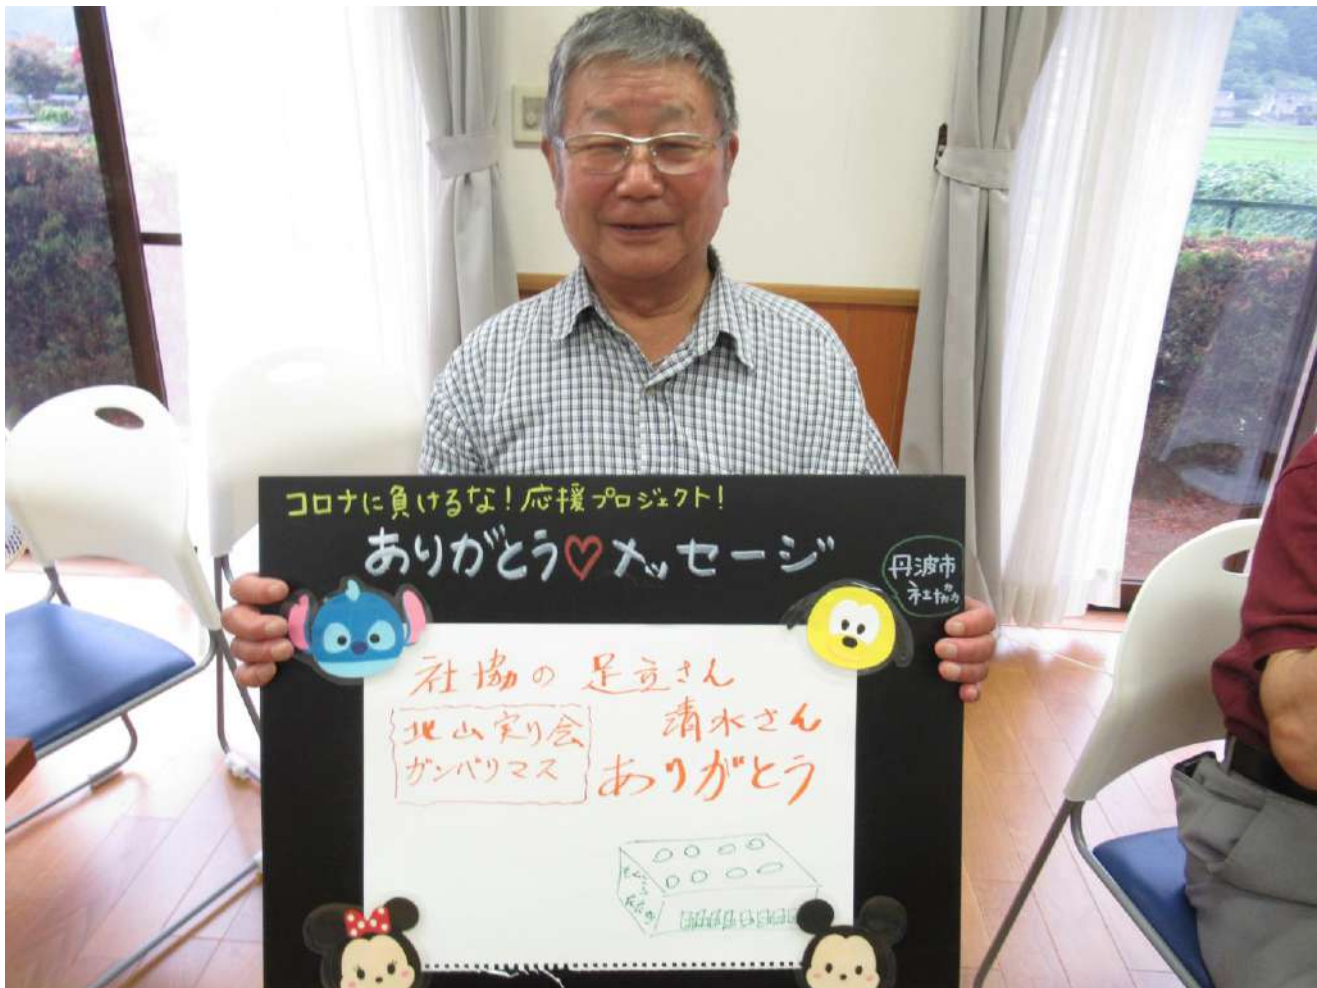 コロナに負けるな!応援プロジェクト!
ありがとう♡メッセージ
丹波市
社協
社協の 足立さん
清水さん
北山実り会
ガンバリマス
ありがとう